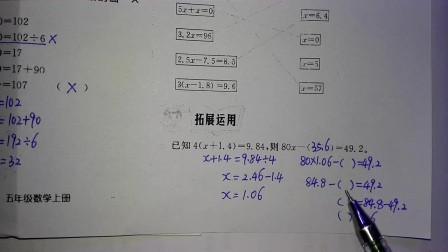 =102
0=102÷6 ×
0=17
0=17+90
=107 （×）
=102
=102+90
=192÷6
=32
五年级数学上册
5x+x=0
3.2x=96
2.5x-7.5=8.5
3(x-1.8)=9.6
x=6.4
x=0
x=5
拓展运用
已知4(x+1.4)=9.84,则80x-(35.6)=49.2。
x+1.4=9.84÷4
x=2.46-1.4
x=1.06
80×1.06-( )=49.2
84.8-( )=49.2
( )=84.8-49.2